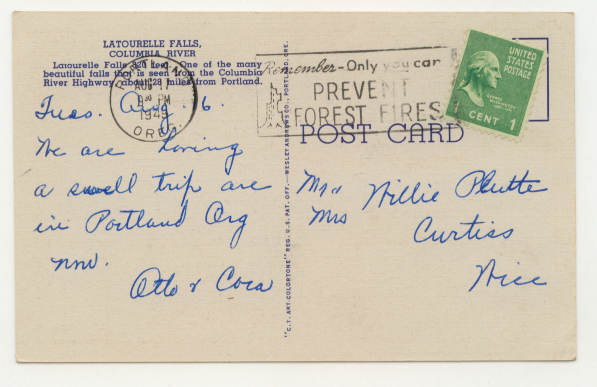 LATOURELLE FALLS,
COLUMBIA RIVER
Latourelle Falls 224 feet. One of the many
beautiful falls that is seen from the Columbia
River Highway about 28 miles from Portland.
PORTLAND
AUG 17
PM
1949
OREG.
Remember-Only you can
PREVENT
FOREST FIRES
UNITED
STATES
POSTAGE
CENT 1
POST CARD
Tues. Aug 16.
We are having
a swell trip are
in Portland Org
now.
Otto & Cora
Mr &
Mrs
Willie Plutte
Curtiss
Wice
"C.T. ART-COLORTONE" REG. U.S. PAT. OFF. — WESLEY ANDREWS CO., PORTLAND, ORE.